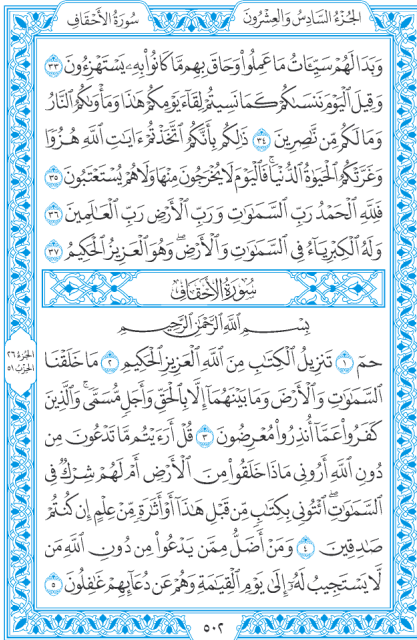 الجُزْءُ السَّادِسُ وَالعِشْرُونَ
سُورَةُ الأَحْقَافِ
وَبَدَا لَهُمْ سَيِّـَٔاتُ مَا عَمِلُوا۟ وَحَاقَ بِهِم مَّا كَانُوا۟ بِهِۦ يَسْتَهْزِءُونَ ٣٣
وَقِيلَ ٱلْيَوْمَ نَنسَىٰكُمْ كَمَا نَسِيتُمْ لِقَآءَ يَوْمِكُمْ هَـٰذَا وَمَأْوَىٰكُمُ ٱلنَّارُ
وَمَا لَكُم مِّن نَّـٰصِرِينَ ٣٤ ذَٰلِكُم بِأَنَّكُمُ ٱتَّخَذْتُمْ ءَايَـٰتِ ٱللَّهِ هُزُوًا
وَغَرَّتْكُمُ ٱلْحَيَوٰةُ ٱلدُّنْيَا ۚ فَٱلْيَوْمَ لَا يُخْرَجُونَ مِنْهَا وَلَا هُمْ يُسْتَعْتَبُونَ ٣٥
فَلِلَّهِ ٱلْحَمْدُ رَبِّ ٱلسَّمَـٰوَٰتِ وَرَبِّ ٱلْأَرْضِ رَبِّ ٱلْعَـٰلَمِينَ ٣٦
وَلَهُ ٱلْكِبْرِيَآءُ فِى ٱلسَّمَـٰوَٰتِ وَٱلْأَرْضِ ۖ وَهُوَ ٱلْعَزِيزُ ٱلْحَكِيمُ ٣٧
سُورَةُ الأَحْقَافِ
بِسْمِ ٱللَّهِ ٱلرَّحْمَـٰنِ ٱلرَّحِيمِ
حمٓ ١ تَنزِيلُ ٱلْكِتَـٰبِ مِنَ ٱللَّهِ ٱلْعَزِيزِ ٱلْحَكِيمِ ٢ مَا خَلَقْنَا
ٱلسَّمَـٰوَٰتِ وَٱلْأَرْضَ وَمَا بَيْنَهُمَآ إِلَّا بِٱلْحَقِّ وَأَجَلٍ مُّسَمًّى ۚ وَٱلَّذِينَ
كَفَرُوا۟ عَمَّآ أُنذِرُوا۟ مُعْرِضُونَ ٣ قُلْ أَرَءَيْتُم مَّا تَدْعُونَ مِن
دُونِ ٱللَّهِ أَرُونِى مَاذَا خَلَقُوا۟ مِنَ ٱلْأَرْضِ أَمْ لَهُمْ شِرْكٌ فِى
ٱلسَّمَـٰوَٰتِ ۖ ٱئْتُونِى بِكِتَـٰبٍ مِّن قَبْلِ هَـٰذَآ أَوْ أَثَـٰرَةٍ مِّنْ عِلْمٍ إِن كُنتُمْ
صَـٰدِقِينَ ٤ وَمَنْ أَضَلُّ مِمَّن يَدْعُوا۟ مِن دُونِ ٱللَّهِ مَن
لَّا يَسْتَجِيبُ لَهُۥٓ إِلَىٰ يَوْمِ ٱلْقِيَـٰمَةِ وَهُمْ عَن دُعَآئِهِمْ غَـٰفِلُونَ ٥
الجُزْءُ ٢٦
الحِزْبُ ٥١
٥٠٢